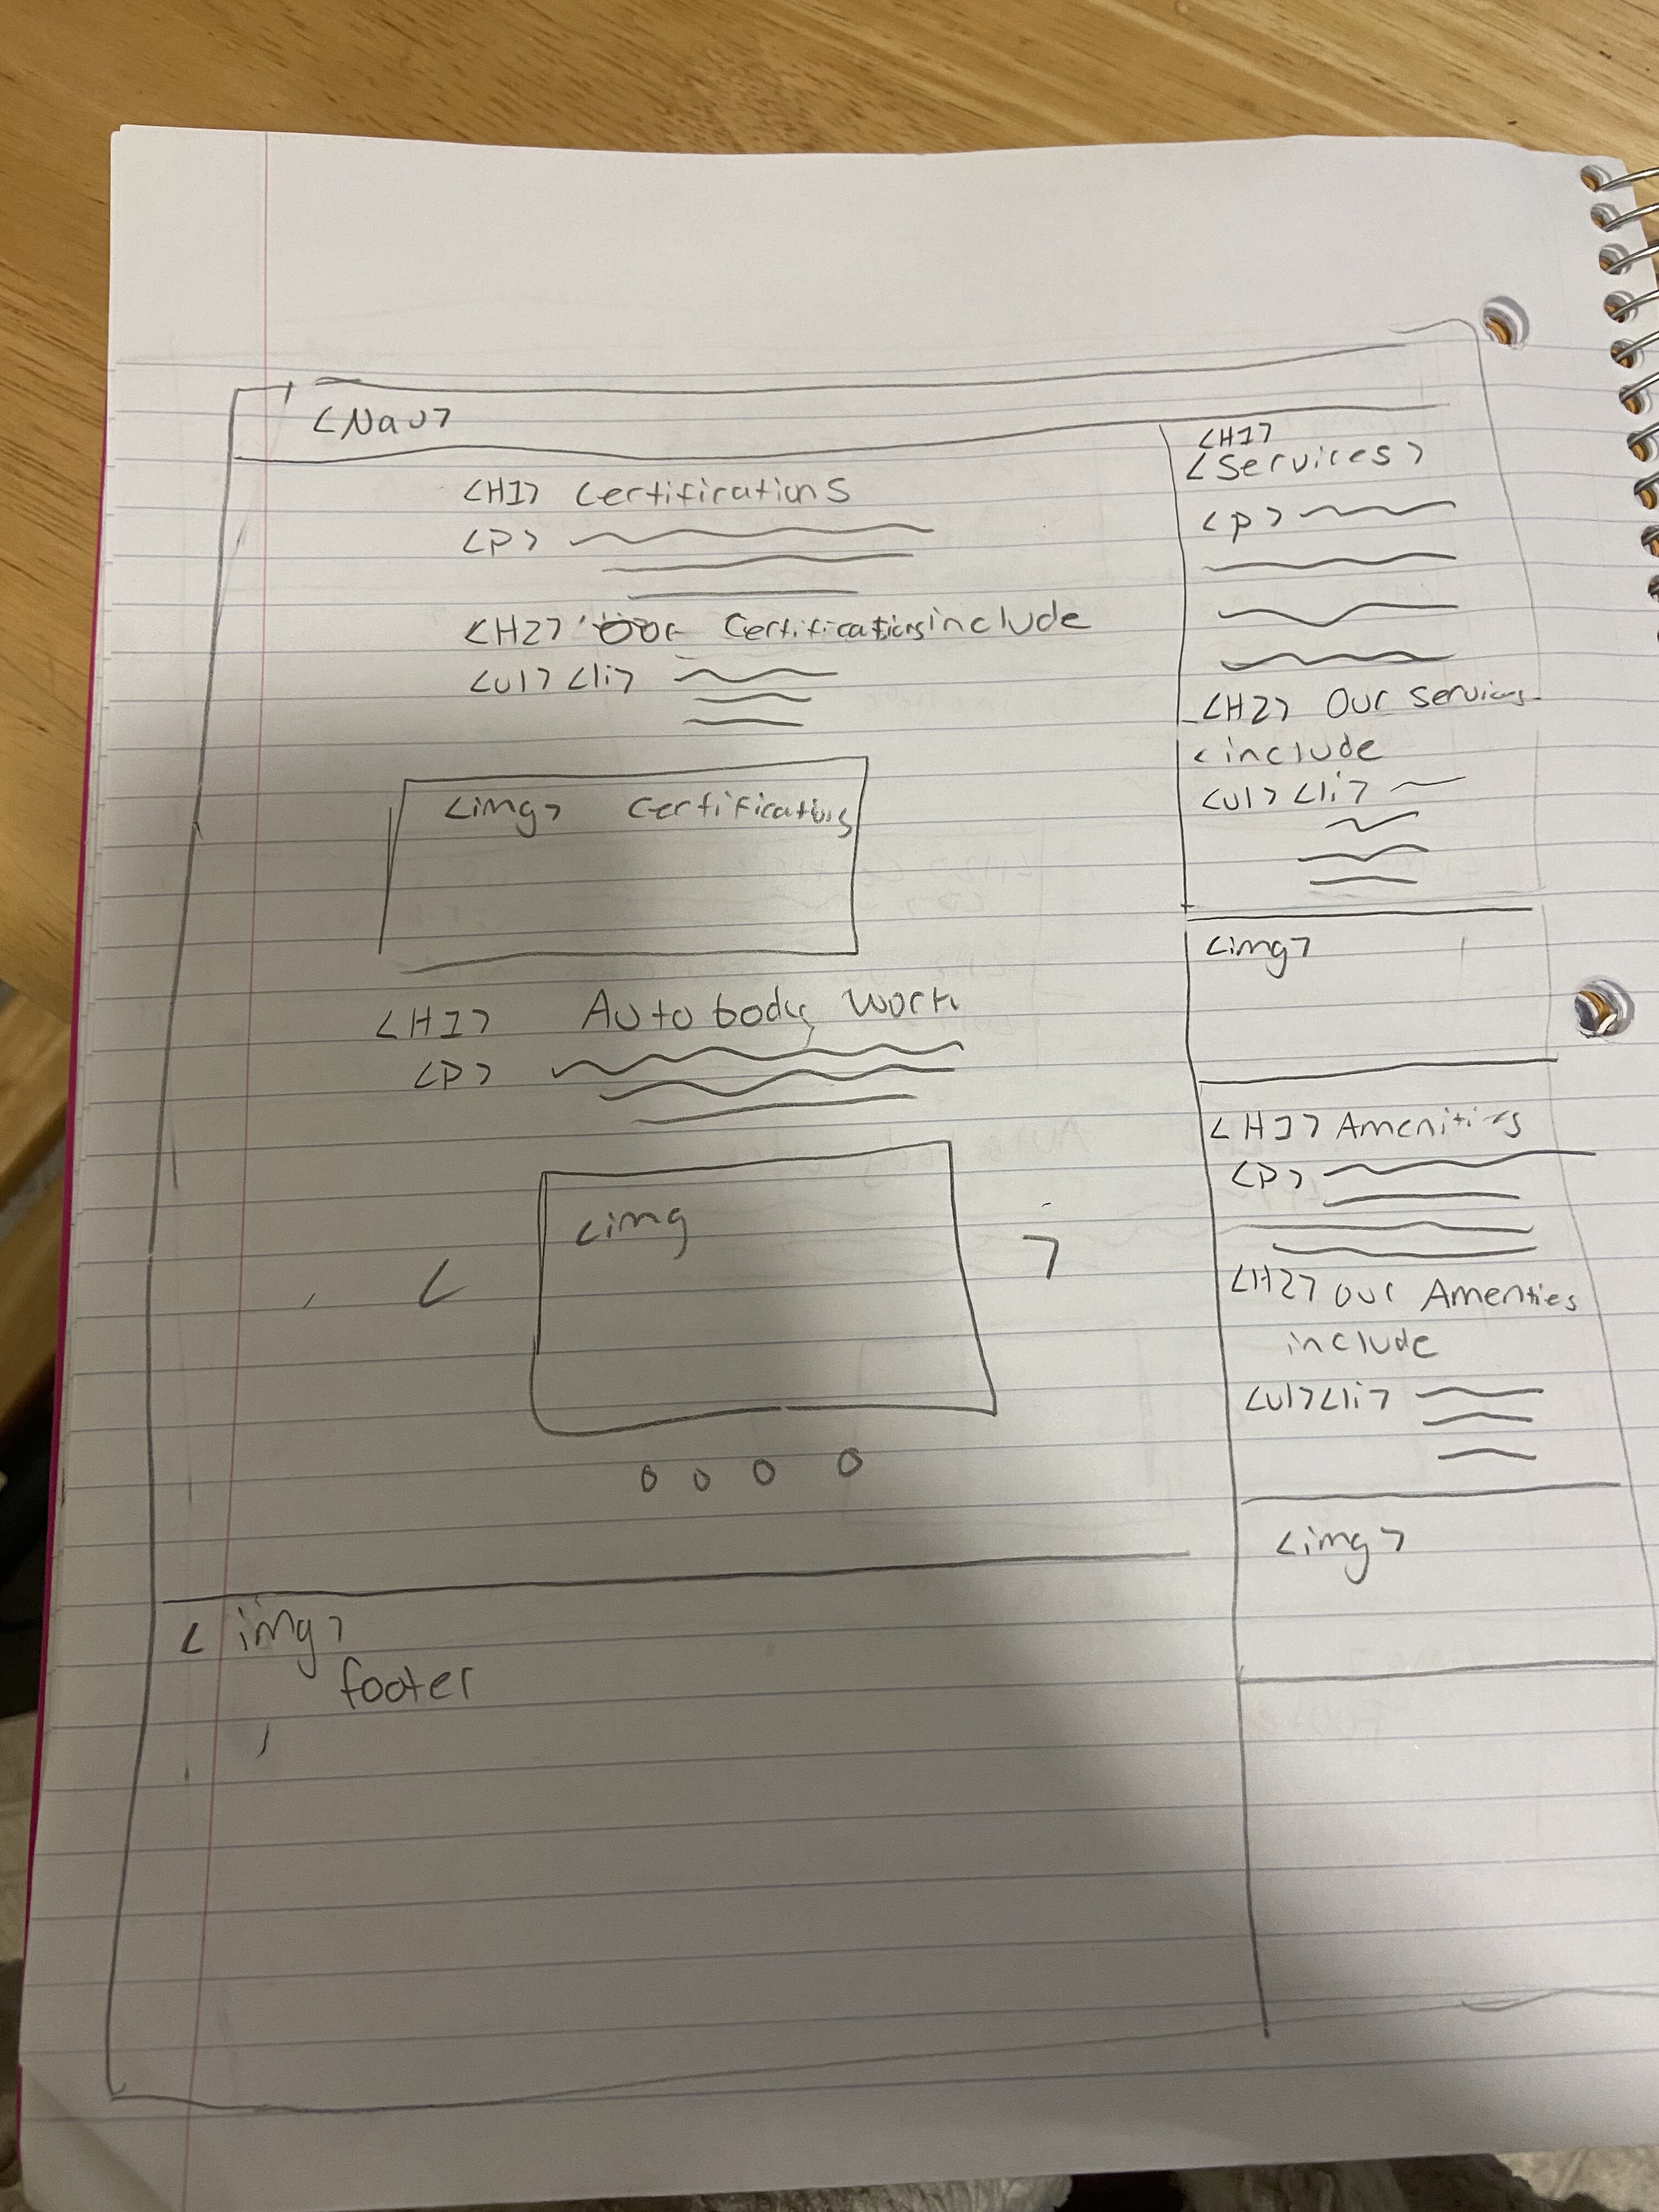 <Nav>
<H1> Certifications
<P>
<H2> Our Certifications include
<ul> <li>
<img> Certifications
<H1> Auto body work
<P>
<img
< >
o o o o
<img>
footer
<H1>
<Services>
<p>
<H2> Our services
< include
<ul> <li>
<img>
<H1> Amenities
<P>
<H2> our Amenties
include
<ul> <li>
<img>